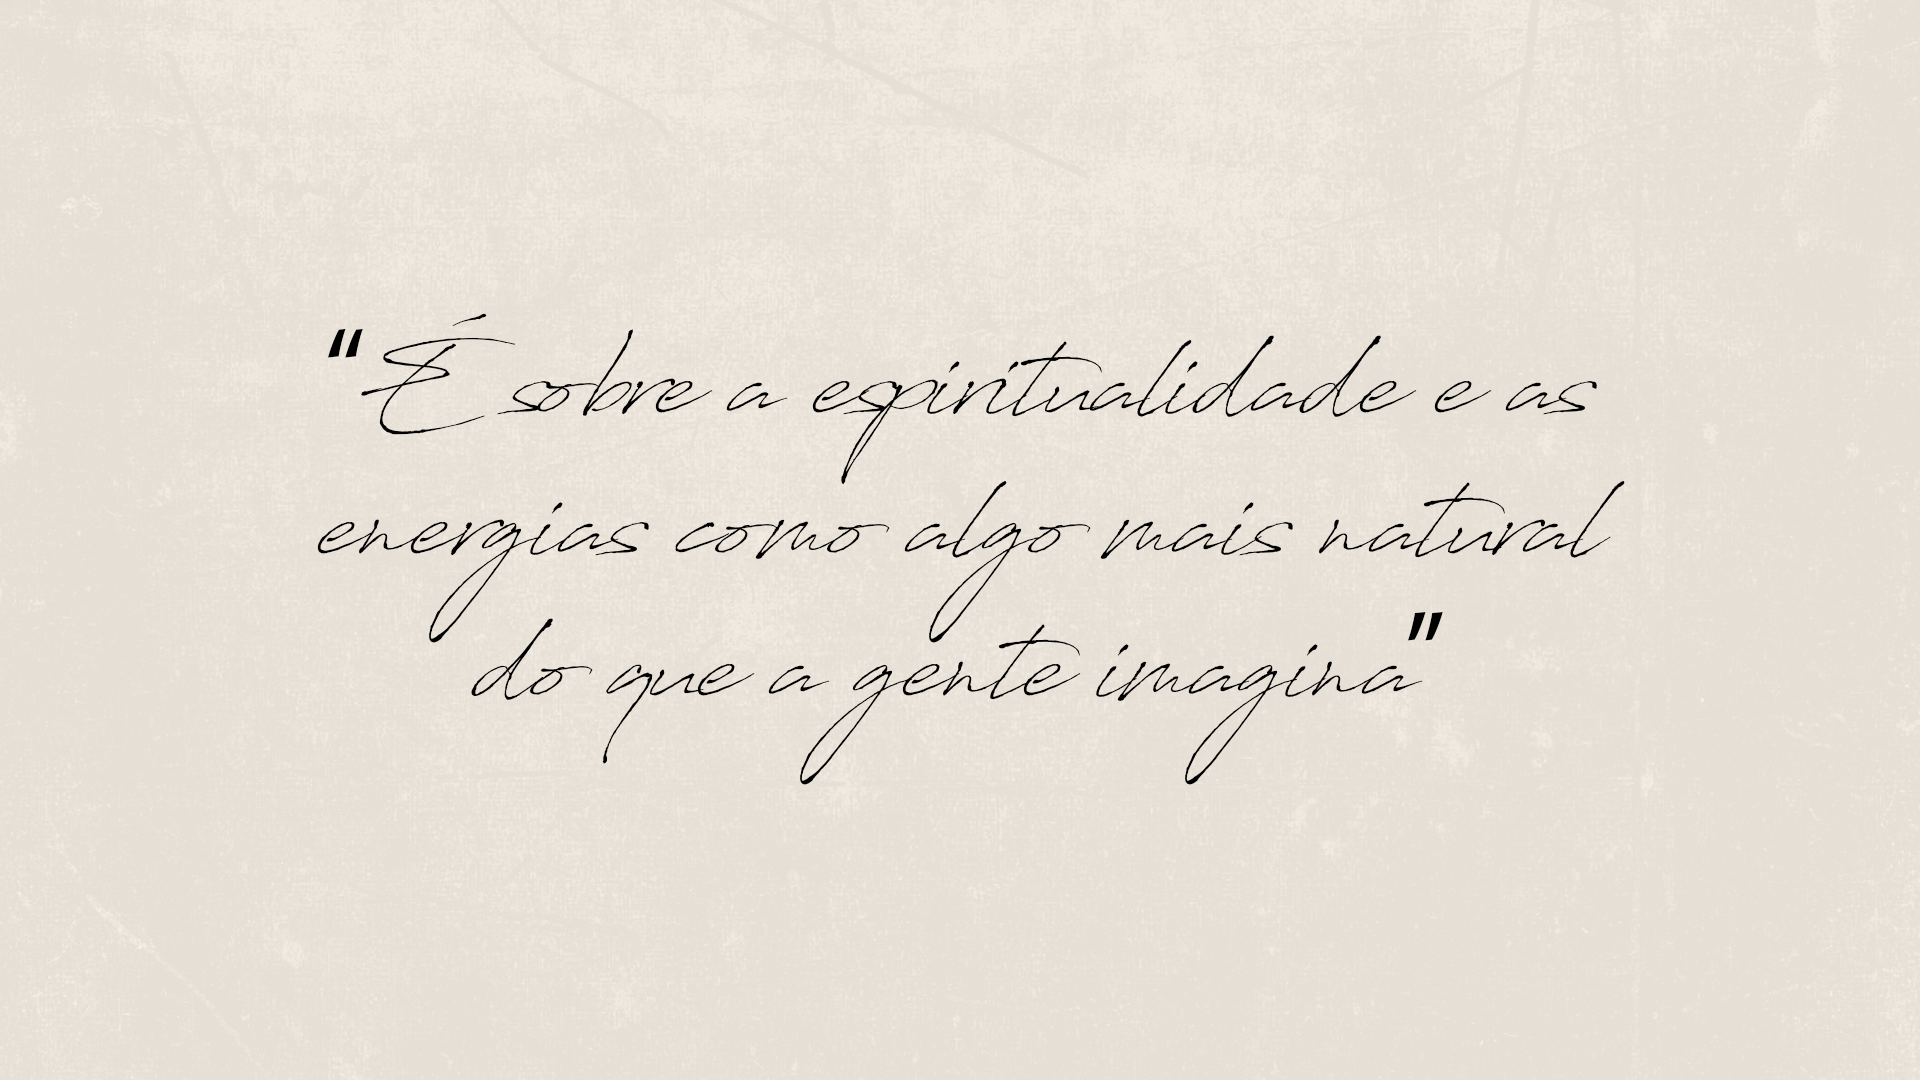 "É sobre a espiritualidade e as
energias como algo mais natural
do que a gente imagina"